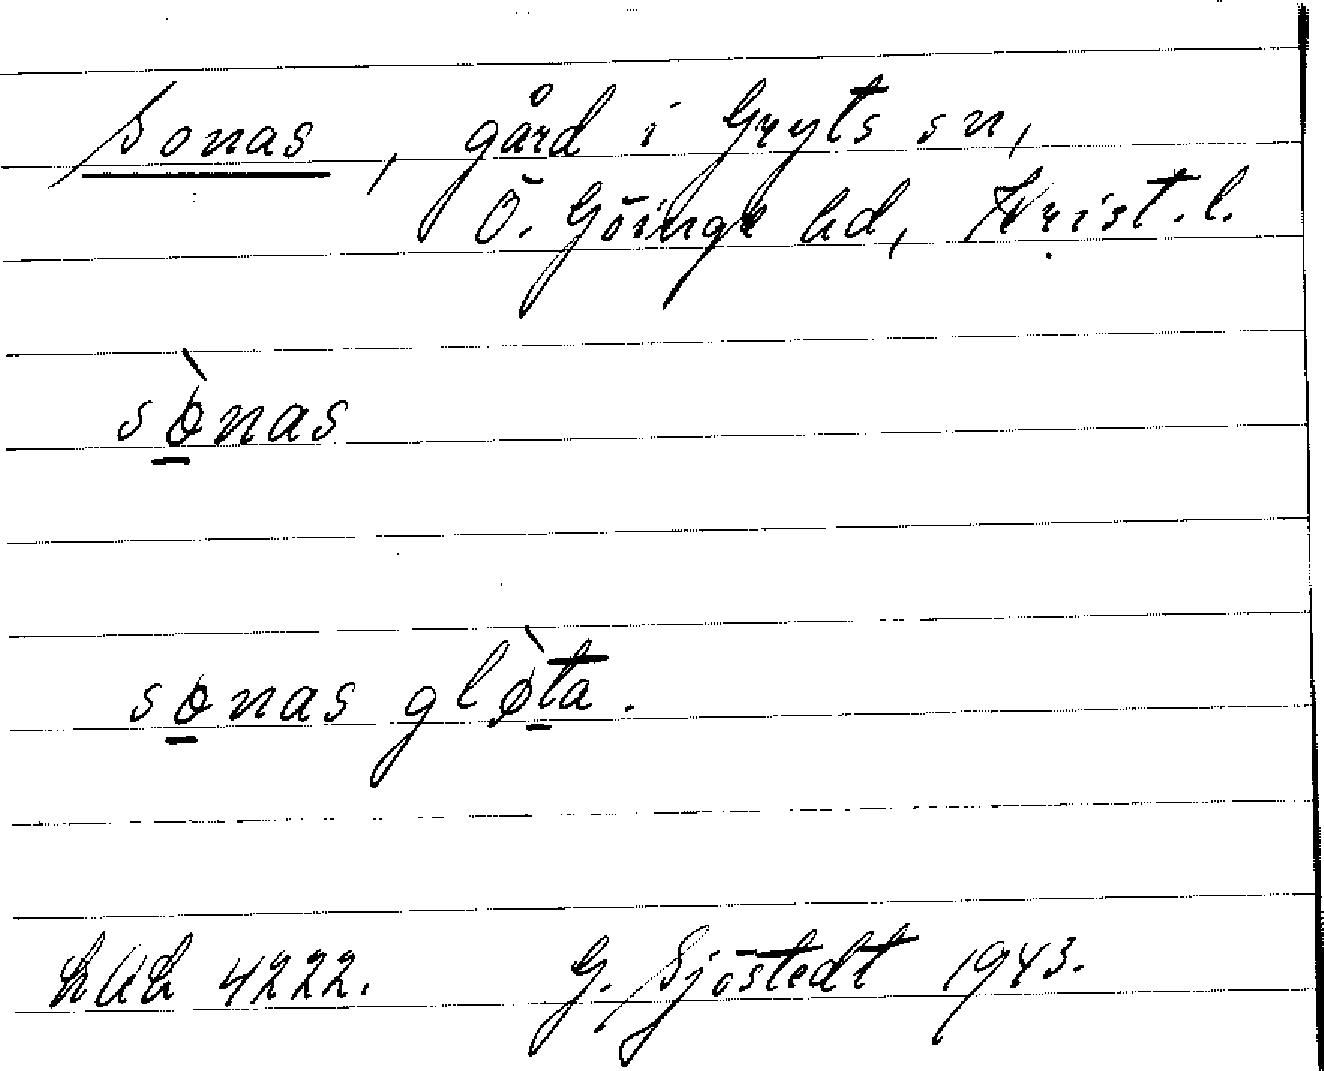 Sonas, gård i Gryts sn,
Ö. Göinge hd, Krist. l.
sò̱nas
so̱nas glø̱̀ta.
LUA 4222. G. Sjöstedt 1943.